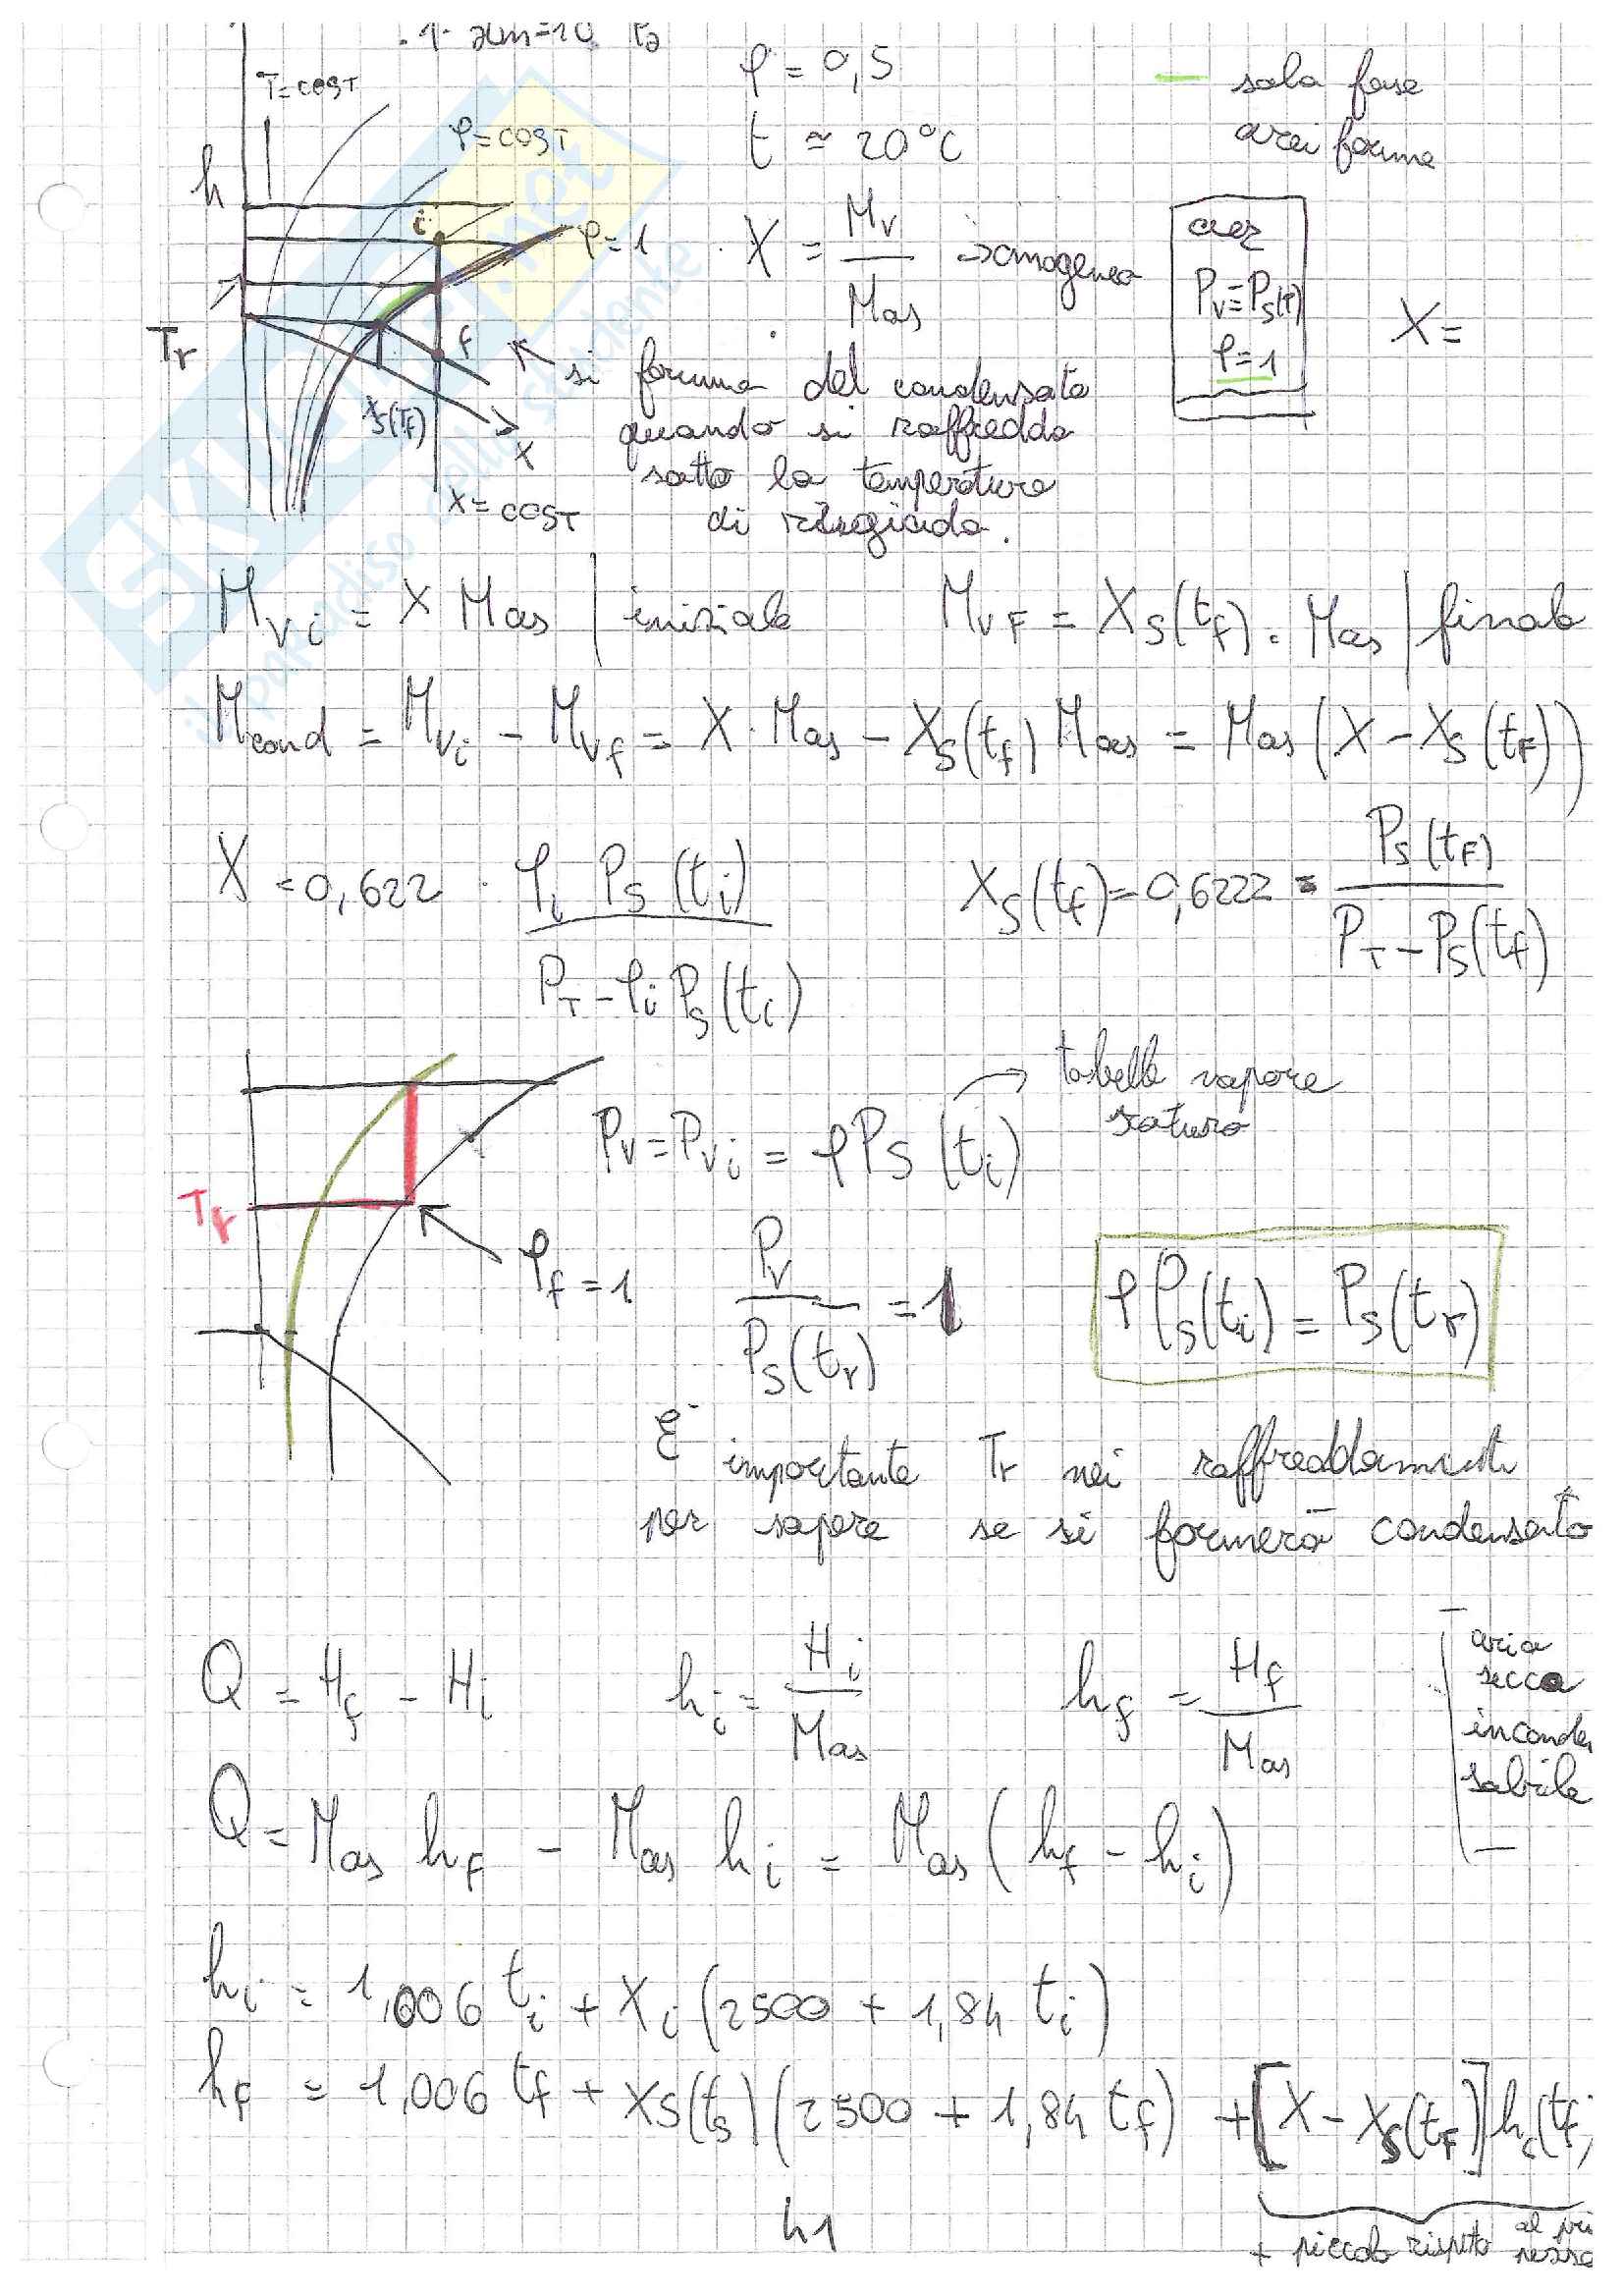 1 atm = 10 Pa
T = COST
φ = COST
h
i
φ = 1
Tr
f
Xs(Tf)
X
X = COST
φ = 0,5
t ≃ 20°C
X = Mv / Mas → omogenea
sola fase
aeriforme
aer
Pv = Ps(T)
φ = 1
X =
si forma del condensato
quando si raffredda
sotto la temperatura
di rugiada.
Mvi = X Mas | iniziale    MvF = Xs(tf) · Mas | finale
Mcond = Mvi - Mvf = X · Mas - Xs(tf) Mas = Mas (X - Xs(tF))
X = 0,622 · φi Ps(ti) / PT - φi Ps(ti)    Xs(tf) = 0,6222 = Ps(tF) / PT - Ps(tf)
Tr
φf = 1
Pv = Pvi = φPs (ti) → tabelle vapore
saturo
Pv / Ps(tr) = 1    φPs(ti) = Ps(tr)
È importante Tr nei raffreddamenti
per sapere se si formerà condensato
Q = Hf - Hi    hi = Hi / Mas    hf = Hf / Mas
aria
secca
inconden
sabile
Q = Mas hf - Mas hi = Mas (hf - hi)
hi = 1,006 ti + Xi (2500 + 1,84 ti)
hf = 1,006 tf + Xs(ts) (2500 + 1,84 tf) + [X - Xs(tF)] hc(tf)
+ piccolo rispetto al
41
SKUOLA.net
il paradiso dello studente